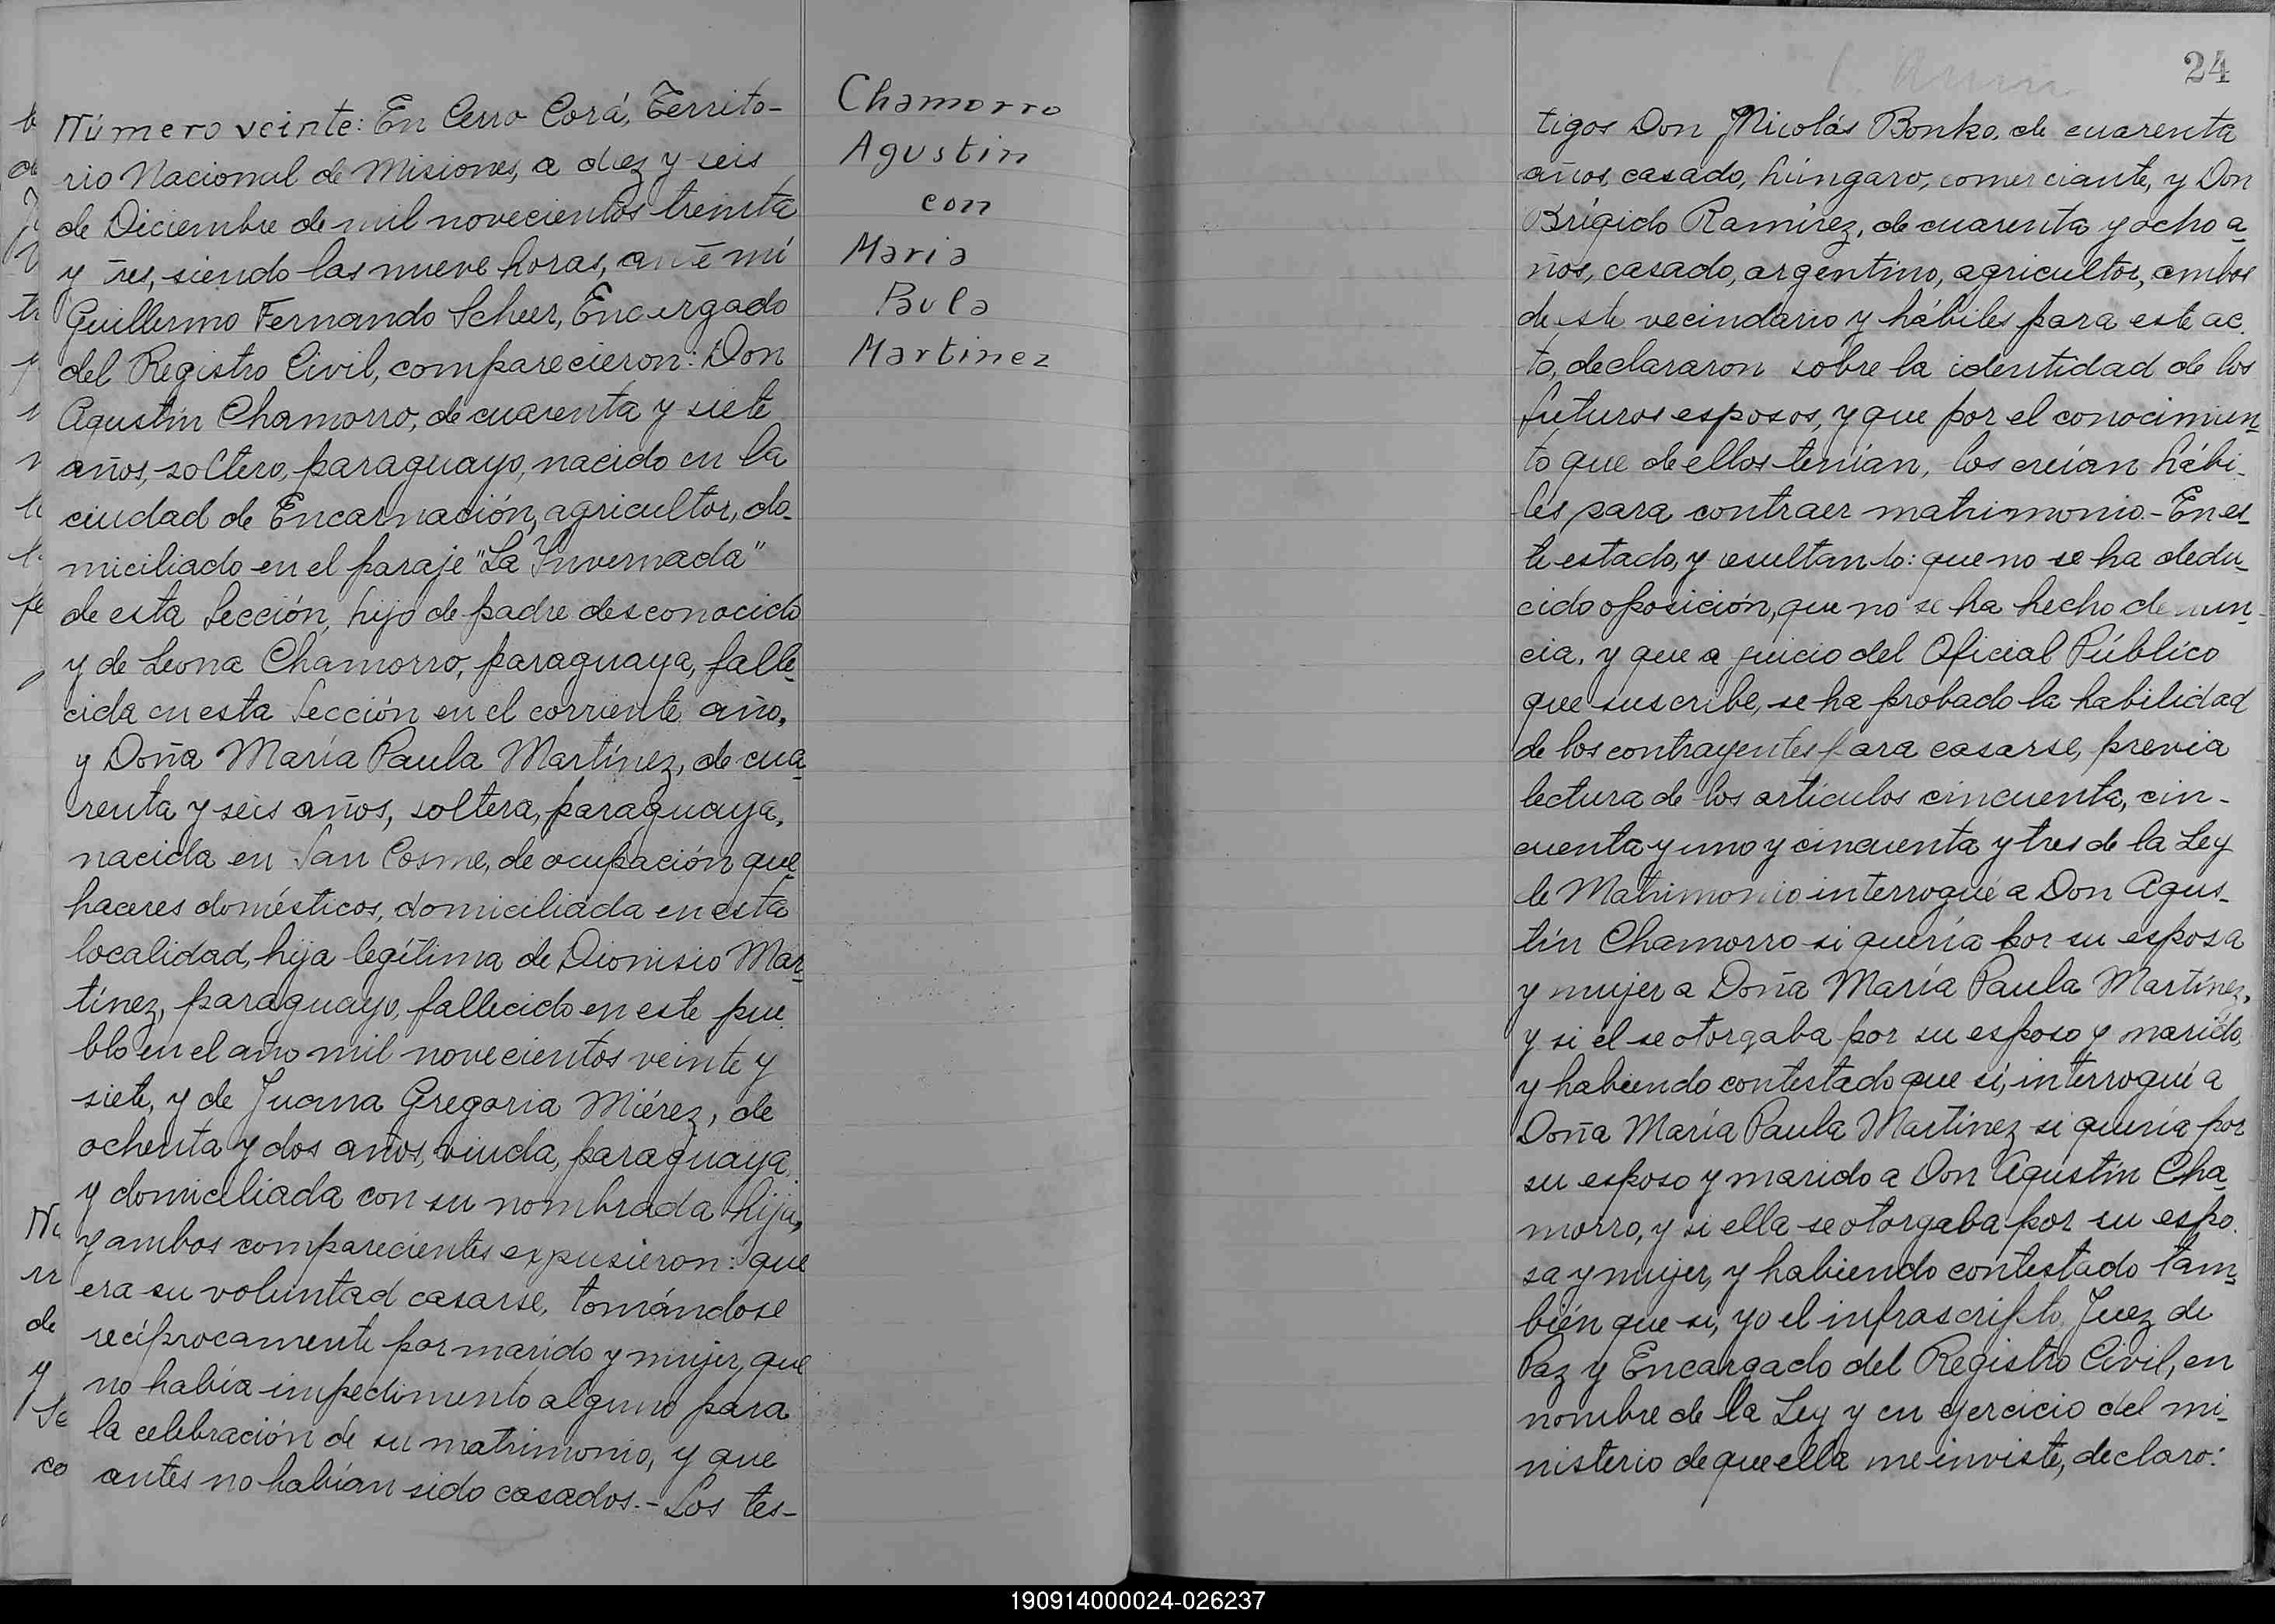 Número veinte: En Cerro Corá, Territo-
rio Nacional de Misiones, a diez y seis
de Diciembre de mil novecientos treinta
y tres, siendo las nueve horas, ante mí
Guillermo Fernando Scheer, Encargado
del Registro Civil, comparecieron: Don
Agustín Chamorro, de cuarenta y siete
años, soltero, paraguayo, nacido en la
ciudad de Encarnación, agricultor, do-
miciliado en el paraje "La Invernada"
de esta Sección, hijo de padre desconocido
y de Leona Chamorro, paraguaya, falle-
cida en esta Sección en el corriente año,
y Doña María Paula Martínez, de cua-
renta y seis años, soltera, paraguaya,
nacida en San Cosme, de ocupación que-
haceres domésticos, domiciliada en esta
localidad, hija legítima de Dionisio Mar-
tínez, paraguayo, fallecido en este pue
blo en el año mil novecientos veinte y
siete, y de Juana Gregoria Miérez, de
ochenta y dos años, viuda, paraguaya,
y domiciliada con su nombrada hija,
y ambos comparecientes expusieron: que
era su voluntad casarse, tomándose
recíprocamente por marido y mujer, que
no había impedimento alguno para
la celebración de su matrimonio, y que
antes no habían sido casados.- Los tes-
Chamorro
Agustin
con
Maria
Pula
Martinez
24
tigos Don Nicolás Bonko, de cuarenta
años, casado, húngaro, comerciante, y Don
Brígido Ramírez, de cuarenta y ocho a-
ños, casado, argentino, agricultor, ambos
de este vecindario y hábiles para este ac-
to, declararon sobre la identidad de los
futuros esposos, y que por el conocimien-
to que de ellos tenían, los creían hábi-
les para contraer matrimonio.- En es-
te estado, y resultando: que no se ha dedu-
cido oposición, que no se ha hecho denun-
cia, y que a juicio del Oficial Público
que suscribe, se ha probado la habilidad
de los contrayentes para casarse, previa
lectura de los artículos cincuenta, cin-
cuenta y uno y cincuenta y tres de la Ley
de Matrimonio interrogué a Don Agus-
tín Chamorro si quería por su esposa
y mujer a Doña María Paula Martínez,
y si él se otorgaba por su esposo y marido,
y habiendo contestado que sí, interrogué a
Doña María Paula Martínez si quería por
su esposo y marido a Don Agustín Cha-
morro, y si ella se otorgaba por su espo-
sa y mujer, y habiendo contestado tam-
bién que sí, yo el infrascripto Juez de
Paz y Encargado del Registro Civil, en
nombre de la Ley y en ejercicio del mi-
nisterio de que ella me inviste, declaro:
190914000024-026237